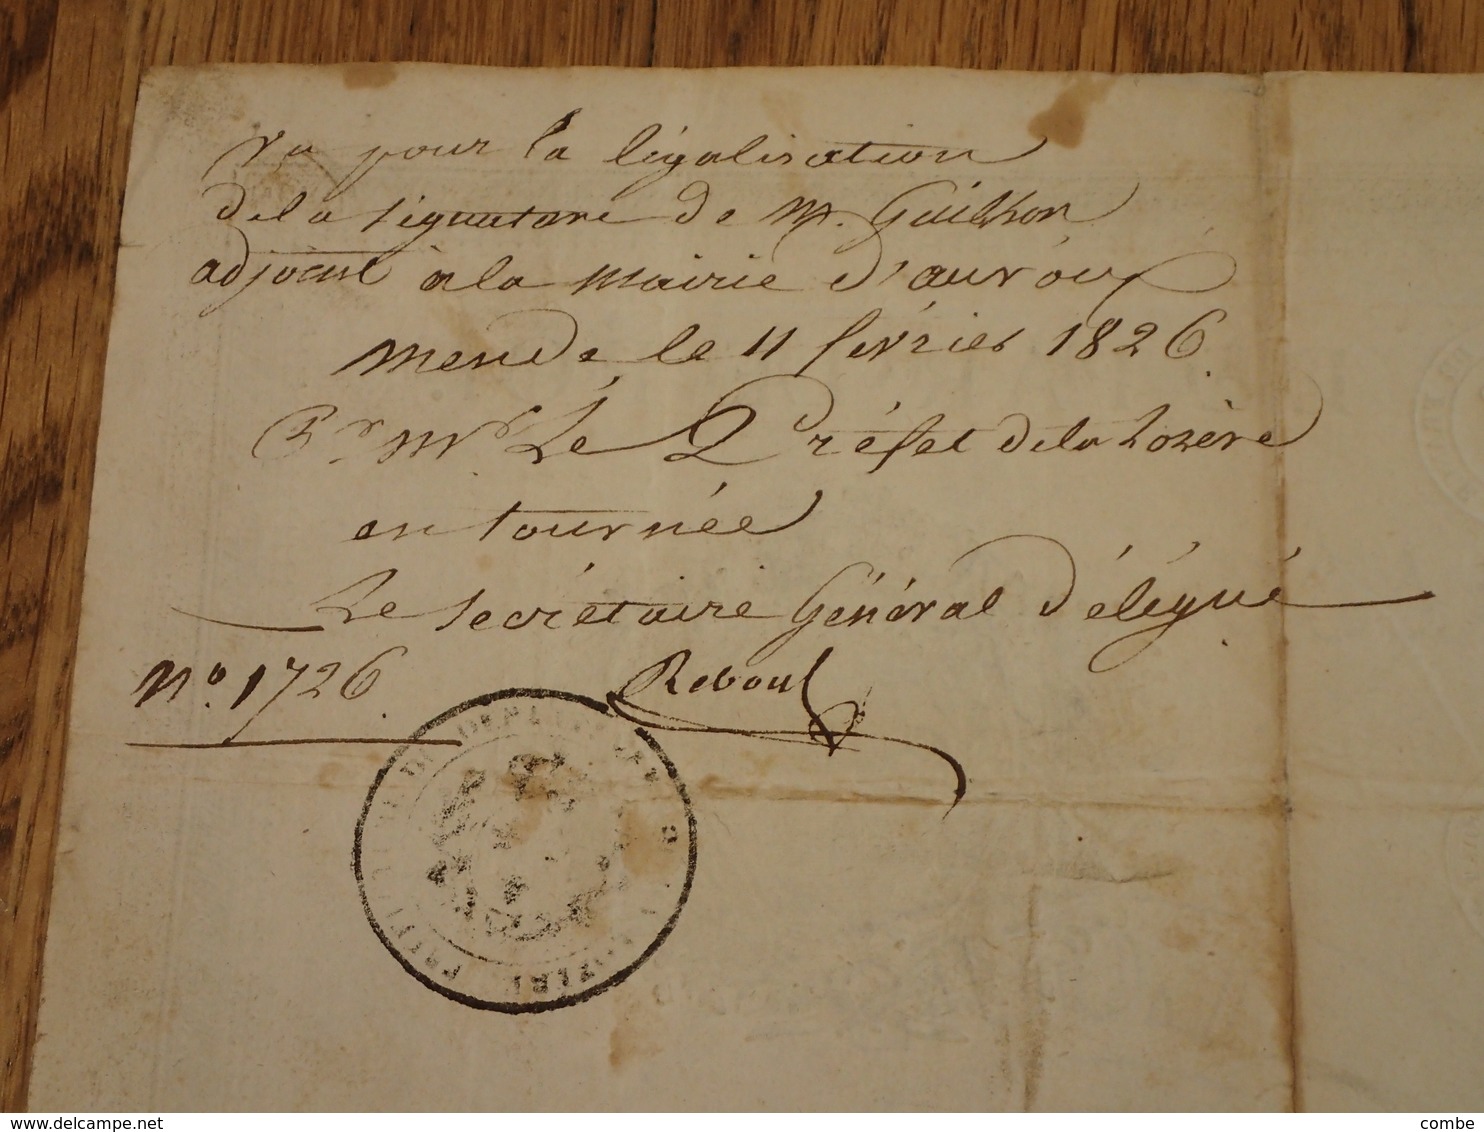 Vu pour la légalisation
de la signature de M. Guilhon
adjoint à la Mairie d'auroux
Mende le 11 février 1826.
Pr. Mr. Le Préfet de la Lozère
en tournée
Le Secrétaire Général Délégué
No. 1726. Reboul
delcampe.net
combe